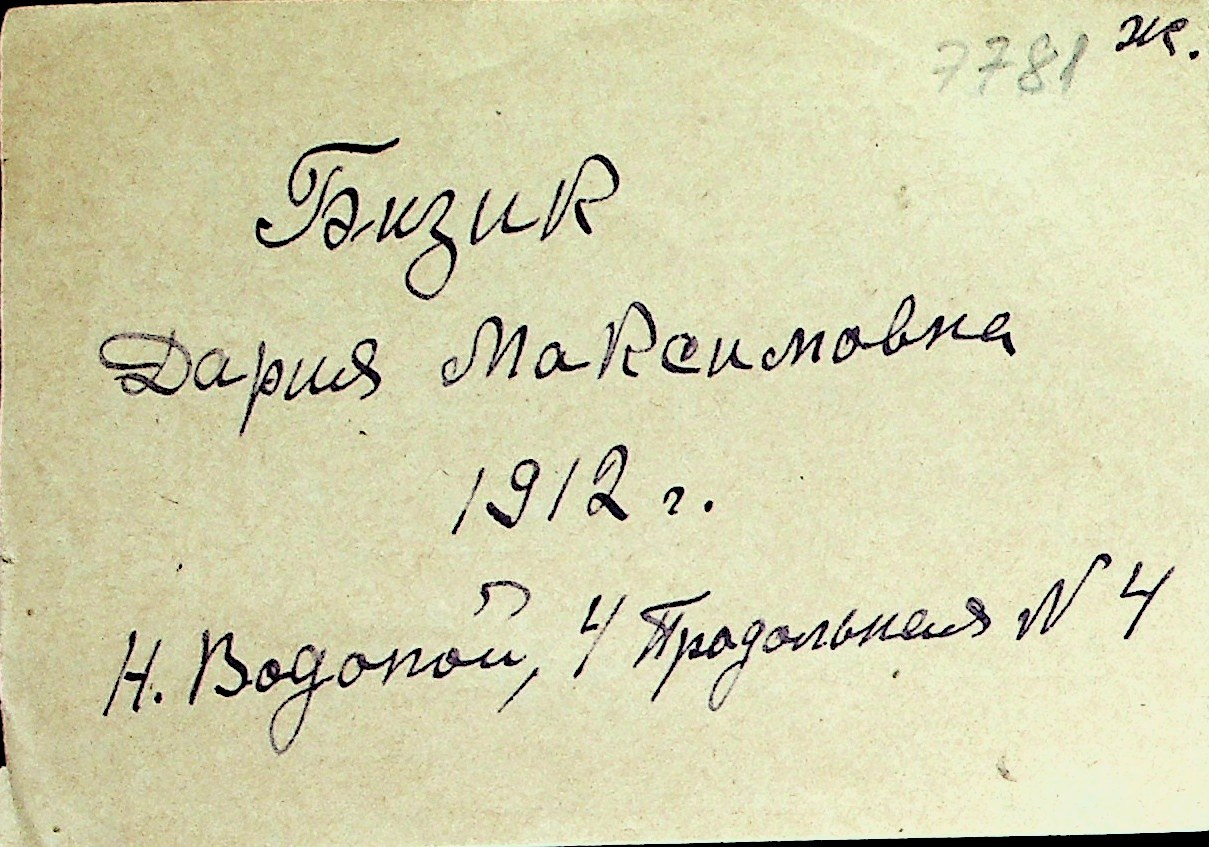 7781 ж.
Бизик
Дария Максимовна
1912 г.
Н. Водопой, 4 Продольная N 4